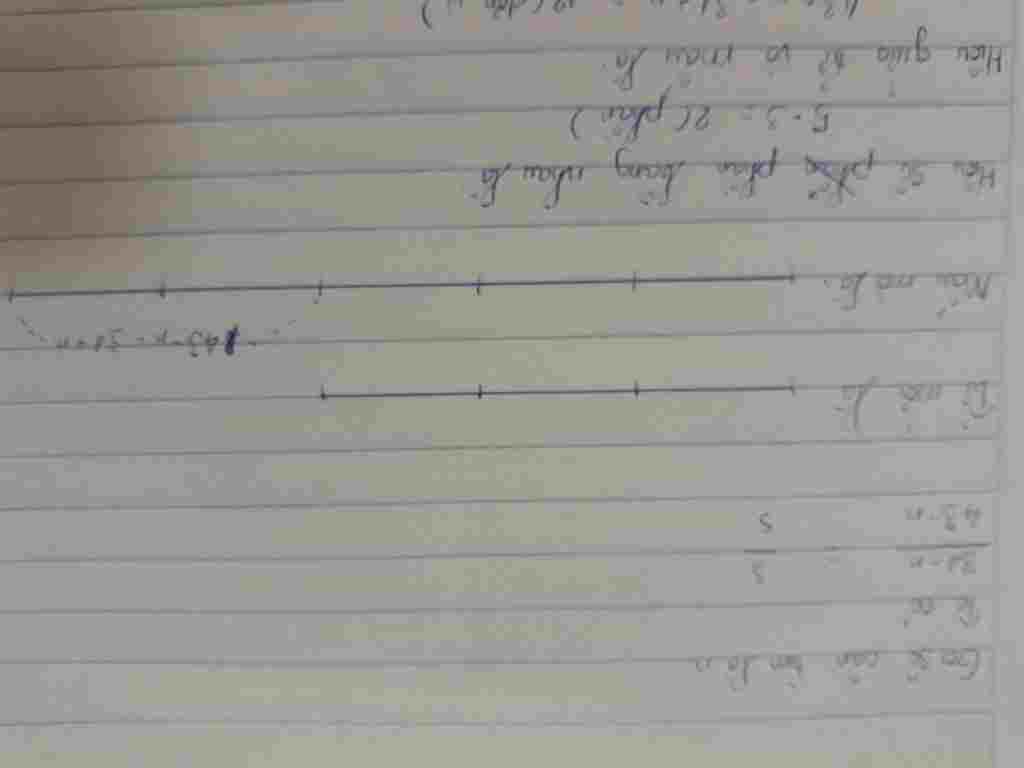 Gọi số cần tìm là n
Ta có
31-n = 3
43-n 5
Tử mới là
Mẫu mới là:
43-n-31+n
Hiệu số phần bằng nhau là
5-3 = 2 ( phần )
Hiệu giữa tử và mẫu là